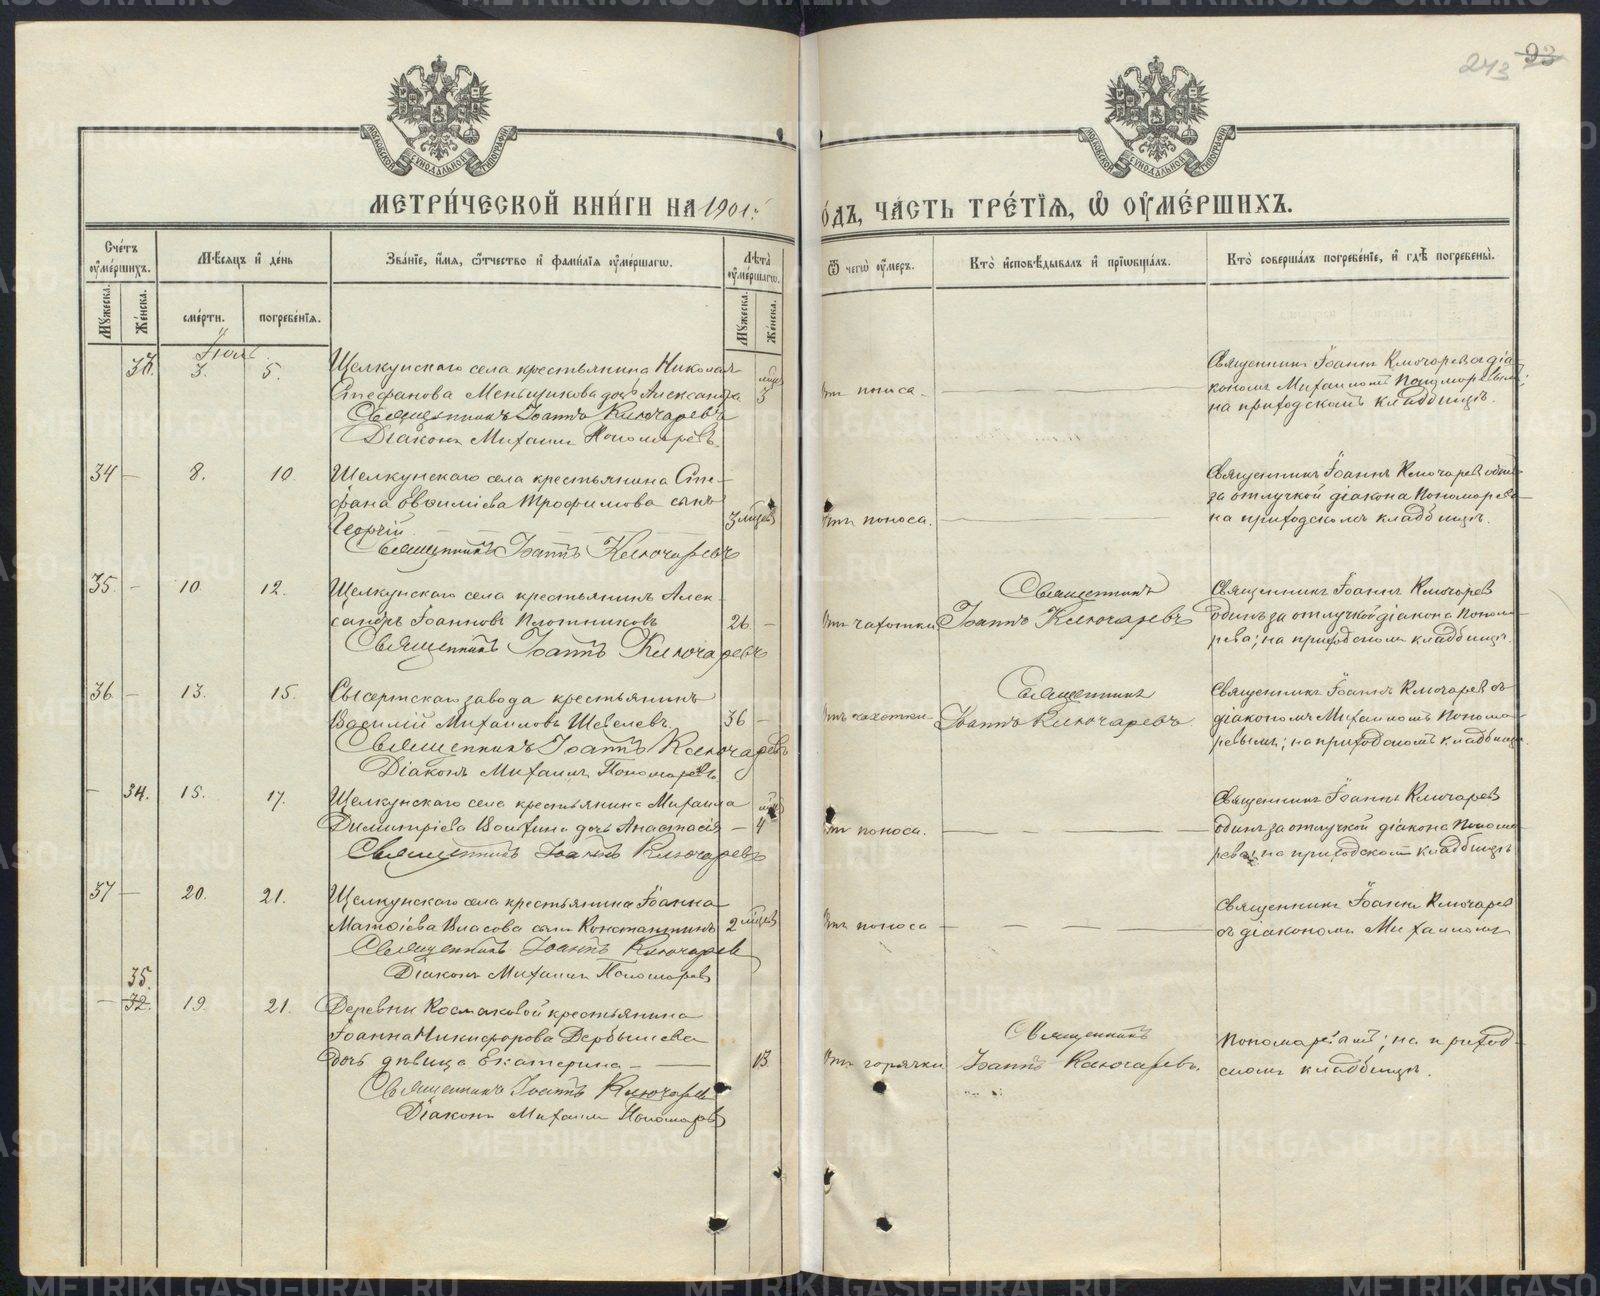 243 93
МОСКОВСКОЙ СѴНОДАЛЬНОЙ ТИПОГРАФІИ
МОСКОВСКОЙ СѴНОДАЛЬНОЙ ТИПОГРАФІИ
МЕТРИ́ЧЕСКОЙ КНИ́ГИ НА 1901 го́дъ, ЧА́СТЬ ТРЕ́ТІѦ, Ѡ҆ ОУ҆МЕ́РШИХЪ.
Сче́тъ оу҆ме́ршихъ.
Мꙋжеска.
Же́нска.
Мѣ́сѧцъ и҆ де́нь
сме́рти.
погребе́нїѧ.
Зва́нїе, и҆́мѧ, ѻ҆́тчество и҆ фами́лїѧ оу҆ме́ршагѡ.
Лѣ́та оу҆ме́ршагѡ.
Мꙋжеска.
Же́нска.
Ѿ чегѡ̀ оу҆́меръ.
Кто̀ и҆сповѣ́дывалъ и҆ прїѡбща́лъ.
Кто̀ соверша́лъ погребе́нїе, и҆ гдѣ̀ погребены̀.
Іюль
33. 3. 5. Щелкунскаго села крестьянина Николая
Стефанова Меньшикова дочь Александра 3 мѣс. Отъ поноса.
Священникъ Іоаннъ Ключаревъ
Діаконъ Михаилъ Пономаревъ
Священникъ Іоаннъ Ключарев съ діа-
кономъ Михаиломъ Пономаревымъ;
на приходскомъ кладбищѣ.
34 — 8. 10. Щелкунскаго села крестьянина Сте-
фана Евфиміева Трофимова сынъ
Георгій 3 мѣсяцев Отъ поноса.
Священникъ Іоаннъ Ключаревъ
Священникъ Іоаннъ Ключарев один
за отлучкой діакона Пономарева
на приходскомъ кладбищѣ.
35. — 10. 12. Щелкунскаго села крестьянинъ Алек-
сандръ Іоанновъ Плотниковъ 26. — Отъ чахотки
Священникъ Іоаннъ Ключаревъ
Священникъ
Іоаннъ Ключаревъ
Священникъ Іоаннъ Ключарев
одинъ за отлучкой діакона Понома-
рева; на приходскомъ кладбищѣ.
36 — 13. 15. Сысертскаго завода крестьянинъ
Василій Михаиловъ Шевелевъ 36 — Отъ чахотки
Священникъ Іоаннъ Ключаревъ
Діаконъ Михаилъ Пономаревъ
Священникъ
Іоаннъ Ключаревъ
Священникъ Іоаннъ Ключарев съ
діакономъ Михаиломъ Понома-
ревымъ; на приходскомъ кладбищѣ.
— 34. 15. 17. Щелкунскаго села крестьянина Михаила
Димитріева дочь Анастасія — 4 Отъ поноса.
Священникъ Іоаннъ Ключаревъ
Священникъ Іоаннъ Ключарев
одинъ за отлучкой діакона Понома-
рева; на приходскомъ кладбищѣ
37 — 20. 21. Щелкунскаго села крестьянина Іоанна
Матѳіева Власова сынъ Константинъ 2 мѣсяцев Отъ поноса
Священникъ Іоаннъ Ключарев
Діаконъ Михаилъ Пономаревъ
Священникъ Іоаннъ Ключарев
съ діакономъ Михаиломъ
35.
— 32. 19. 21. Деревни Космаковой крестьянина
Іоанна Никифорова Дербышева
дочь дѣвица Екатерина — 13. Отъ горячки
Священникъ Іоаннъ Ключарев
Діаконъ Михаилъ Пономаревъ
Священникъ
Іоаннъ Ключаревъ.
Пономаревымъ; на приход-
скомъ кладбищѣ.
METRIKI.GASO-URAL.RU